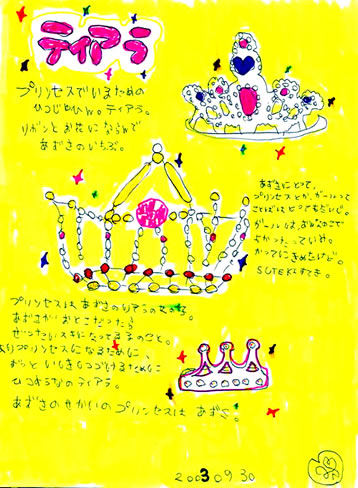 ティアラ
プリンセスでいるための
ひつじゅひん。ティアラ。
リボンとお花にならんで
あずきのいちぶ。
あずきにとって、
プリンセスとか、ガールって
ことばはとってもだいじ。
ガールは、おんなのこで
よかったっていみ。
かってにきめたけど。
SUTEKIすてき。
プリンセスは あずきの
あずきがおとこだったら
ぜったいスキになってるこのこと。
よりプリンセスになるために
ずっと いしきしつづけるために
ひつようなのティアラ。
あずきのせかいのプリンセスは あずき。
2003 09 30